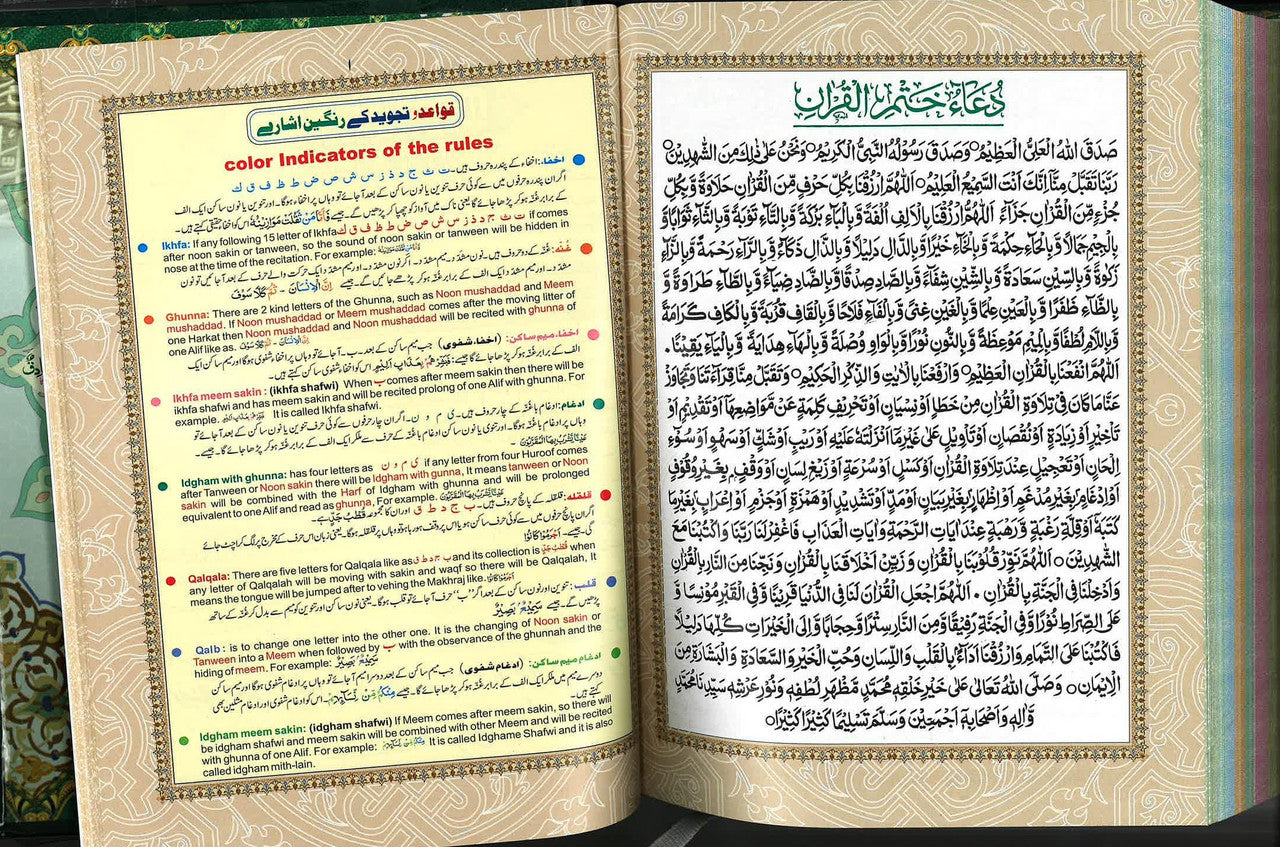 قواعد و تجوید کے رنگین اشاریے
color Indicators of the rules
اخفاء: اخفاء کے پندرہ حروف ہیں۔ ت ث ج د ذ ز س ش ص ض ط ظ ف ق ک
اگر ان پندرہ حرفوں میں سے کوئی حرف تنوین یا نون ساکن کے بعد آجائے تو وہاں پر اخفاء ہوگا۔ اور تنوین یا نون ساکن ایک الف
کے برابر غنّہ ہو کر پڑھا جائے گا یعنی ناک میں آواز کو چھپا کر پڑھیں گے۔ جیسے فَاَمَّا مَنْ ثَقُلَتْ مَوَازِیْنُهٗ اس کو اخفاء حقیقی کہتے ہیں۔
Ikhfa: If any following 15 letter of Ikhfa ت ث ج د ذ ز س ش ص ض ط ظ ف ق ک if comes
after noon sakin or tanween, so the sound of noon sakin or tanween will be hidden in
nose at the time of the recitation. For example:
غنّہ: غنّہ کے دو حروف ہیں۔ نون مشدّد۔ میم مشدّد۔ اگر نون مشدّد۔ اور میم مشدّد ایک حرکت والے حرف کے بعد آجائیں تو نون
مشدّد۔ اور میم مشدّد ایک الف کے برابر غنّہ پڑھے جائیں گے۔ جیسے اِنَّ الْاِنْسَانَ - ثُمَّ كَلَّا سَوْفَ
Ghunna: There are 2 kind letters of the Ghunna, such as Noon mushaddad and Meem
mushaddad. If Noon mushaddad or Meem mushaddad comes after the moving litter of
one Harkat then Noon mushaddad and Noon mushaddad will be recited with ghunna of
one Alif like as.
اخفاء میم ساکن: (اخفاء شفوی) جب میم ساکن کے بعد۔ ب۔ آجائے تو وہاں پر اخفاء شفوی ہوگا اور میم ساکن ایک
الف کے برابر غنّہ ہو کر پڑھا جائے گا جیسے: فَبَشِّرْهُمْ بِعَذَابٍ اَلِیْمٍ اس کو اخفاء شفوی کہتے ہیں۔
Ikhfa meem sakin : (ikhfa shafwi) When ب comes after meem sakin then there will be
ikhfa shafwi and has meem sakin and will be recited prolong of one Alif with ghunna. For
example. It is called Ikhfa shafwi.
ادغام: ادغام باغنّہ کے چار حروف ہیں۔ ی م و ن۔ اگر ان چار حرفوں سے کوئی حرف تنوین یا نون ساکن کے بعد آجائے تو
وہاں پر ادغام باغنّہ ہوگا۔ اور تنوین یا نون ساکن ادغام باغنّہ کے حرف سے ملکر ایک الف کے برابر غنّہ ہو کر پڑھا جائے گا۔ جیسے۔
عَيْنًا يَّشْرَبُ بِهَا الْمُقَرَّبُوْنَ۔
Idgham with ghunna: has four letters as ی م و ن if any letter from four Huroof comes
after Tanween or Noon sakin there will be Idgham with gunna, It means tanween or Noon
sakin will be combined with the Harf of Idgham with ghunna and will be prolonged
equivalent to one Alif and read as ghunna, For example. عَيْنًا يَّشْرَبُ بِهَا الْمُقَرَّبُوْنَ
قلقلہ: قلقلہ کے پانچ حروف ہیں۔ ب ج د ط ق اور ان کا مجموعہ قُطْبُ جَدٍّ ہے۔
اگر ان پانچ حرفوں میں سے کوئی حرف ساکن ہو یا اس پر وقف ہو رہا ہو تو وہاں پر قلقلہ ہوگا۔ یعنی زبان اس حرف کے مخرج پر لگ کر اچٹ جائے
گی۔ جیسے۔ اَجْرَمُوْا كَانُوْا
Qalqala: There are five letters for Qalqala like as ب ج د ط ق and its collection is قُطْبُ جَدٍّ when
any letter of Qalqalah will be moving with sakin and waqf so there will be Qalqalah, It
means the tongue will be jumped after to vching the Makhraj like. اَجْرَمُوْا كَانُوْا
قلب: تنوین اور نون ساکن کے بعد اگر "ب" حرف آجائے تو قلب ہوگا۔ یعنی نون ساکن اور تنوین کو میم سے بدل کر غنّہ کے ساتھ
پڑھیں گے۔ جیسے سَمِیْعٌۢ بَصِیْرٌ
Qalb : is to change one letter into the other one. It is the changing of Noon sakin or
Tanween into a Meem when followed by ب with the observance of the ghunnah and the
hiding of meem. For example: سَمِیْعٌۢ بَصِیْرٌ
ادغام میم ساکن: (ادغام شفوی) جب میم ساکن کے بعد دوسرا میم آجائے تو وہاں پر ادغام شفوی ہوگا اور میم ساکن
دوسرے میم میں ملکر ایک الف کے برابر غنّہ ہو کر پڑھا جائے گا۔ جیسے مِنْكُمْ مِّنْ نِّسَآئِهِمْ۔ اس کو ادغام شفوی اور ادغام مثلین بھی
کہتے ہیں۔
Idgham meem sakin: (idgham shafwi) If Meem comes after meem sakin, so there will
be idgham shafwi and meem sakin will be combined with other Meem and will be recited
with ghunna of one Alif. For example: It is called Idghame Shafwi and it is also
called idgham mith-lain.
دُعَاءُ خَتْمِ الْقُرْاٰنِ
صَدَقَ اللهُ الْعَلِیُّ الْعَظِیْمُ ○ وَصَدَقَ رَسُوْلُهُ النَّبِیُّ الْكَرِیْمُ ○ وَنَحْنُ عَلٰی ذٰلِكَ مِنَ الشّٰهِدِیْنَ ○
رَبَّنَا تَقَبَّلْ مِنَّا اِنَّكَ اَنْتَ السَّمِیْعُ الْعَلِیْمُ ○ اَللّٰهُمَّ ارْزُقْنَا بِكُلِّ حَرْفٍ مِّنَ الْقُرْاٰنِ حَلَاوَةً وَّبِكُلِّ
جُزْءٍ مِّنَ الْقُرْاٰنِ جَزَآءً اَللّٰهُمَّ ارْزُقْنَا بِالْاَلِفِ اُلْفَةً وَّبِالْبَآءِ بَرَكَةً وَّبِالتَّآءِ تَوْبَةً وَّبِالثَّآءِ ثَوَابًا وَّ
بِالْجِیْمِ جَمَالًا وَّبِالْحَآءِ حِكْمَةً وَّبِالْخَآءِ خَیْرًا وَّبِالدَّالِ دَلِیْلًا وَّبِالذَّالِ ذَكَآءً وَّبِالرَّآءِ رَحْمَةً وَّبِالزَّآءِ
زَكٰوةً وَّبِالسِّیْنِ سَعَادَةً وَّبِالشِّیْنِ شِفَآءً وَّبِالصَّادِ صِدْقًا وَّبِالضَّادِ ضِیَآءً وَّبِالطَّآءِ طَرَاوَةً وَّ
بِالظَّآءِ ظَفَرًا وَّبِالْعَیْنِ عِلْمًا وَّبِالْغَیْنِ غِنًی وَّبِالْفَآءِ فَلَاحًا وَّبِالْقَافِ قُرْبَةً وَّبِالْكَافِ كَرَامَةً
وَّبِاللَّامِ لُطْفًا وَّبِالْمِیْمِ مَوْعِظَةً وَّبِالنُّوْنِ نُوْرًا وَّبِالْوَاوِ وُصْلَةً وَّبِالْهَآءِ هِدَایَةً وَّبِالْیَآءِ یَقِیْنًا۔
اَللّٰهُمَّ انْفَعْنَا بِالْقُرْاٰنِ الْعَظِیْمِ ○ وَارْفَعْنَا بِالْاٰیٰتِ وَالذِّكْرِ الْحَكِیْمِ ○ وَتَقَبَّلْ مِنَّا قِرَآءَتَنَا وَتَجَاوَزْ
عَنَّا مَا كَانَ فِیْ تِلَاوَةِ الْقُرْاٰنِ مِنْ خَطَاٍ اَوْ نِسْیَانٍ اَوْ تَحْرِیْفِ كَلِمَةٍ عَنْ مَّوَاضِعِهَا اَوْ تَقْدِیْمٍ اَوْ
تَاْخِیْرٍ اَوْ زِیَادَةٍ اَوْ نُقْصَانٍ اَوْ تَاْوِیْلٍ عَلٰی غَیْرِ مَا اَنْزَلْتَهٗ عَلَیْهِ اَوْ رَیْبٍ اَوْ شَكٍّ اَوْ سَهْوٍ اَوْ سُوْٓءِ
اِلْحَانٍ اَوْ تَعْجِیْلٍ عِنْدَ تِلَاوَةِ الْقُرْاٰنِ اَوْ كَسَلٍ اَوْ سُرْعَةٍ اَوْ زَیْغِ لِسَانٍ اَوْ وَقْفٍ بِغَیْرِ وُقُوْفٍ
اَوْ اِدْغَامٍ بِغَیْرِ مُدْغَمٍ اَوْ اِظْهَارٍ بِغَیْرِ بَیَانٍ اَوْ مَدٍّ اَوْ تَشْدِیْدٍ اَوْ هَمْزَةٍ اَوْ جَزْمٍ اَوْ اِعْرَابٍ بِغَیْرِ مَا
كَتَبَهٗ اَوْ قِلَّةِ رَغْبَةٍ وَّرَهْبَةٍ عِنْدَ اٰیَاتِ الرَّحْمَةِ وَاٰیَاتِ الْعَذَابِ فَاغْفِرْ لَنَا رَبَّنَا وَاكْتُبْنَا مَعَ
الشّٰهِدِیْنَ ○ اَللّٰهُمَّ نَوِّرْ قُلُوْبَنَا بِالْقُرْاٰنِ وَزَیِّنْ اَخْلَاقَنَا بِالْقُرْاٰنِ وَنَجِّنَا مِنَ النَّارِ بِالْقُرْاٰنِ
وَاَدْخِلْنَا فِی الْجَنَّةِ بِالْقُرْاٰنِ۔ اَللّٰهُمَّ اجْعَلِ الْقُرْاٰنَ لَنَا فِی الدُّنْیَا قَرِیْنًا وَّفِی الْقَبْرِ مُوْنِسًا وَّ
عَلَی الصِّرَاطِ نُوْرًا وَّفِی الْجَنَّةِ رَفِیْقًا وَّمِنَ النَّارِ سِتْرًا وَّحِجَابًا وَّاِلَی الْخَیْرَاتِ كُلِّهَا دَلِیْلًا
فَاكْتُبْنَا عَلَی التَّمَامِ وَارْزُقْنَا اَدَآءً بِالْقَلْبِ وَاللِّسَانِ وَحُبِّ الْخَیْرِ وَالسَّعَادَةِ وَالْبَشَارَةِ مِنَ
الْاِیْمَانِ ○ وَصَلَّی اللهُ تَعَالٰی عَلٰی خَیْرِ خَلْقِهٖ مُحَمَّدٍ مَّظْهَرِ لُطْفِهٖ وَنُوْرِ عَرْشِهٖ سَیِّدِنَا مُحَمَّدٍ
وَّاٰلِهٖ وَاَصْحَابِهٖ اَجْمَعِیْنَ وَسَلَّمَ تَسْلِیْمًا كَثِیْرًا كَثِیْرًا ○